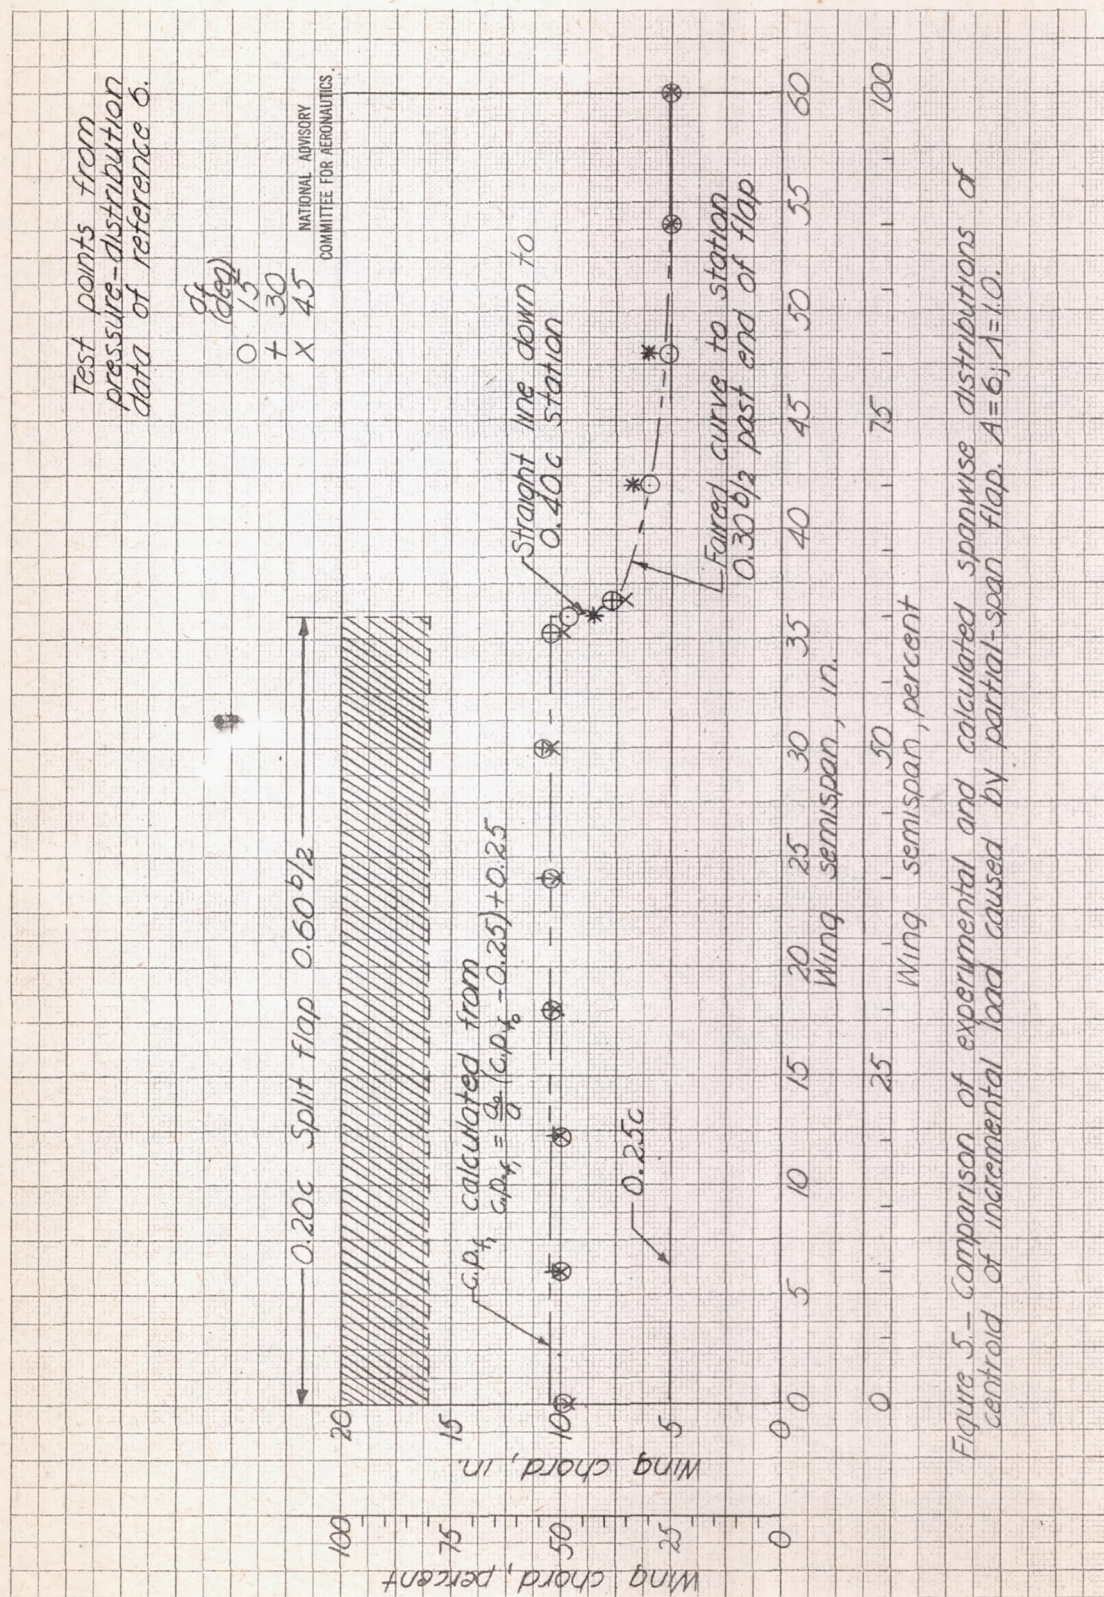 Test points from
pressure-distribution
data of reference 6.
δf
(deg)
O 15
+ 30
X 45
NATIONAL ADVISORY
COMMITTEE FOR AERONAUTICS.
0.20c Split flap 0.60 b/2
c.p.f₁ calculated from
c.p.f₁ = a₀/a (c.p.f₀ - 0.25) + 0.25
Straight line down to
0.40c station
Faired curve to station
0.30 b/2 past end of flap
0.25c
Wing chord, percent
100 75 50 25 0
Wing chord, in.
20 15 10 5 0
0 5 10 15 20 25 30 35 40 45 50 55 60
Wing semispan, in.
0 25 50 75 100
Wing semispan, percent
Figure 5.- Comparison of experimental and calculated spanwise distributions of
centroid of incremental load caused by partial-span flap. A=6; λ=1.0.